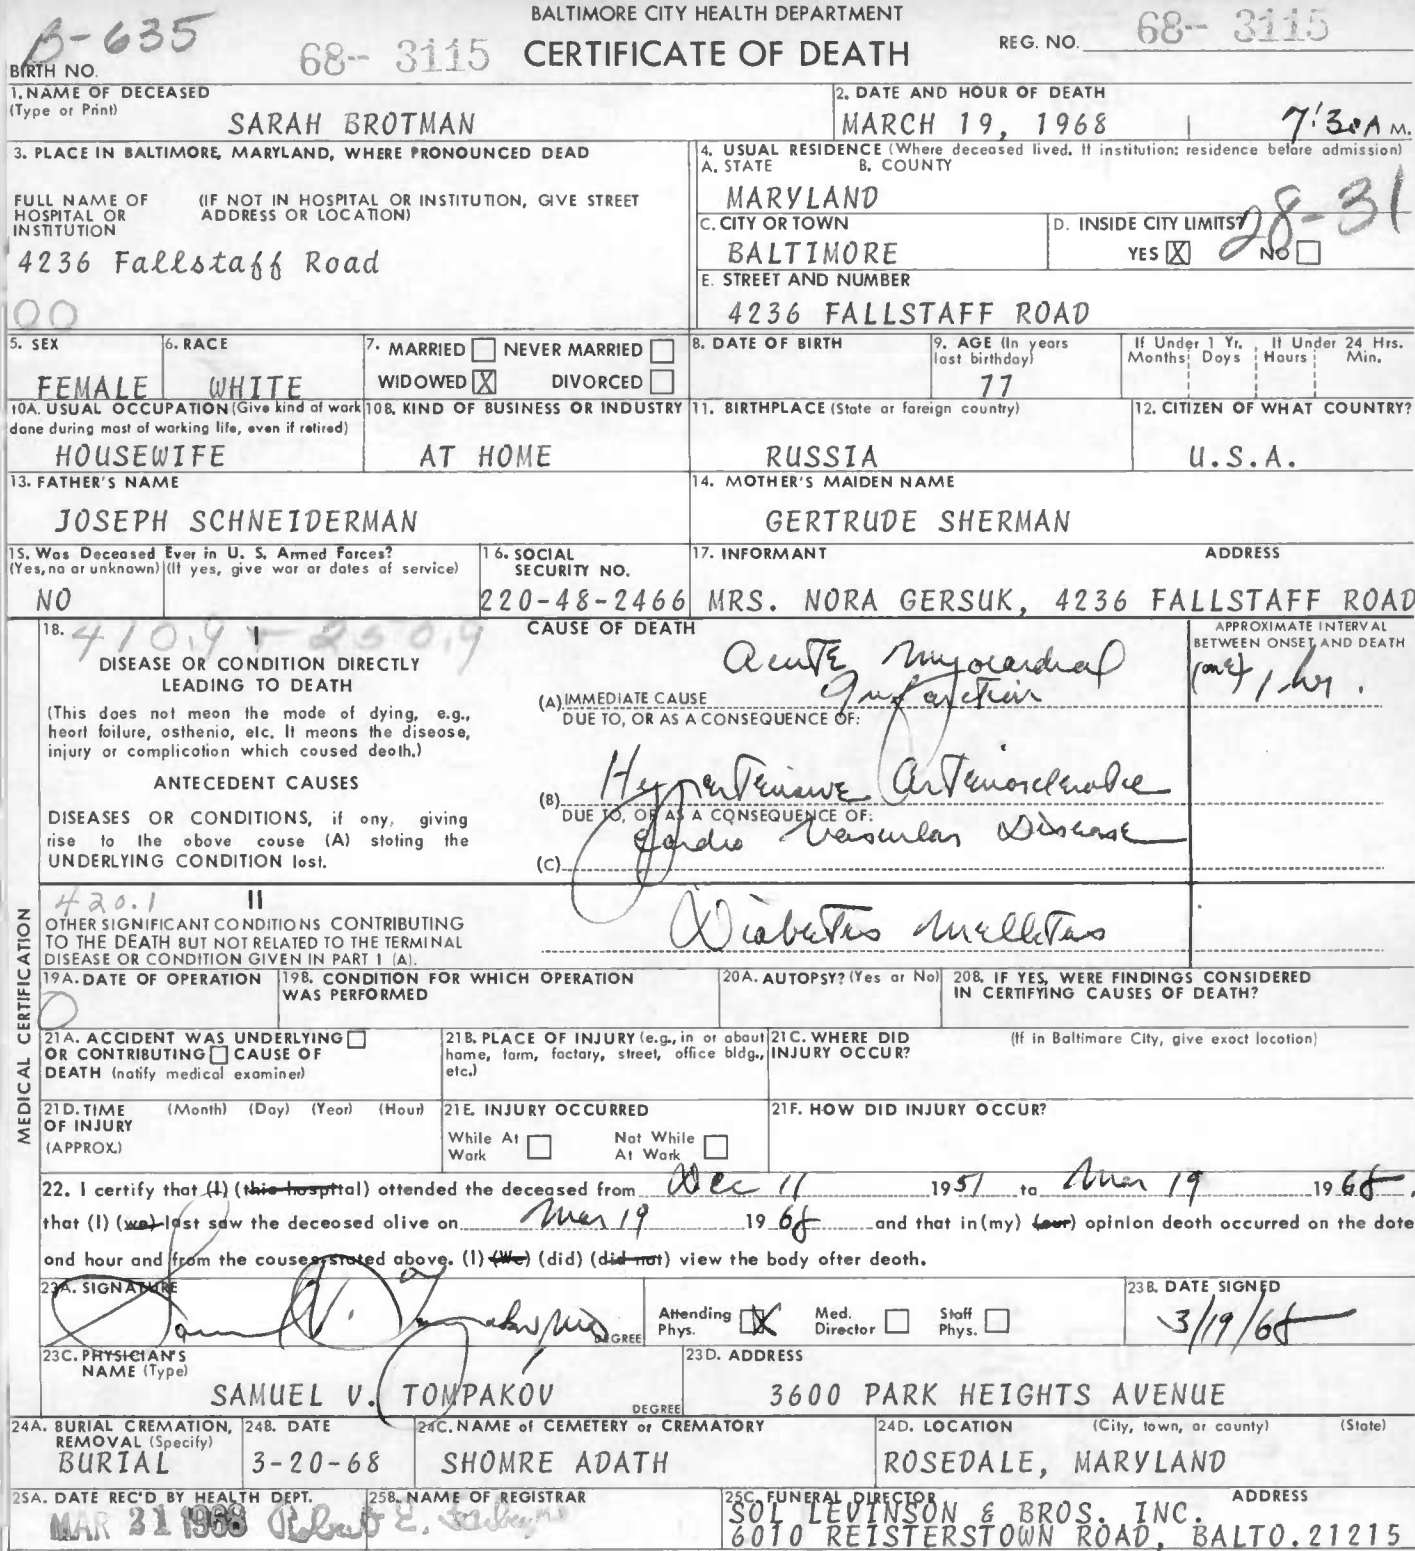 B-635
BIRTH NO.
68-- 3115
BALTIMORE CITY HEALTH DEPARTMENT
CERTIFICATE OF DEATH
REG. NO. 68-- 3115
1. NAME OF DECEASED
(Type or Print)
SARAH BROTMAN
2. DATE AND HOUR OF DEATH
MARCH 19, 1968 7:30 A M.
3. PLACE IN BALTIMORE, MARYLAND, WHERE PRONOUNCED DEAD
FULL NAME OF HOSPITAL OR INSTITUTION
(IF NOT IN HOSPITAL OR INSTITUTION, GIVE STREET ADDRESS OR LOCATION)
4236 Fallstaff Road
00
4. USUAL RESIDENCE (Where deceased lived. If institution: residence before admission)
A. STATE B. COUNTY
MARYLAND
28-31
C. CITY OR TOWN
BALTIMORE
D. INSIDE CITY LIMITS?
YES X NO
E. STREET AND NUMBER
4236 FALLSTAFF ROAD
5. SEX
FEMALE
6. RACE
WHITE
7. MARRIED NEVER MARRIED
WIDOWED X DIVORCED
8. DATE OF BIRTH
9. AGE (In years last birthday)
77
If Under 1 Yr. If Under 24 Hrs.
Months Days Hours Min.
10A. USUAL OCCUPATION (Give kind of work done during most of working life, even if retired)
HOUSEWIFE
10B. KIND OF BUSINESS OR INDUSTRY
AT HOME
11. BIRTHPLACE (State or foreign country)
RUSSIA
12. CITIZEN OF WHAT COUNTRY?
U.S.A.
13. FATHER'S NAME
JOSEPH SCHNEIDERMAN
14. MOTHER'S MAIDEN NAME
GERTRUDE SHERMAN
15. Was Deceased Ever in U. S. Armed Forces?
(Yes, no or unknown) (If yes, give war or dates of service)
NO
16. SOCIAL SECURITY NO.
220-48-2466
17. INFORMANT ADDRESS
MRS. NORA GERSUK, 4236 FALLSTAFF ROAD
MEDICAL CERTIFICATION
18. 410.9 + 250.9
I
DISEASE OR CONDITION DIRECTLY
LEADING TO DEATH
(This does not mean the mode of dying, e.g.,
heart failure, asthenia, etc. It means the disease,
injury or complication which caused death.)
ANTECEDENT CAUSES
DISEASES OR CONDITIONS, if any, giving
rise to the above cause (A) stating the
UNDERLYING CONDITION last.
CAUSE OF DEATH
Acute Myocardial
(A) IMMEDIATE CAUSE Infarction
DUE TO, OR AS A CONSEQUENCE OF:
(B) Hypertensive Arteriosclerotic
DUE TO, OR AS A CONSEQUENCE OF:
Cardio Vascular Disease
(C)
APPROXIMATE INTERVAL
BETWEEN ONSET AND DEATH
(one) 1 hr.
420.1
II
OTHER SIGNIFICANT CONDITIONS CONTRIBUTING
TO THE DEATH BUT NOT RELATED TO THE TERMINAL
DISEASE OR CONDITION GIVEN IN PART I (A).
Diabetes Mellitus
19A. DATE OF OPERATION
0
19B. CONDITION FOR WHICH OPERATION WAS PERFORMED
20A. AUTOPSY? (Yes or No)
20B. IF YES, WERE FINDINGS CONSIDERED IN CERTIFYING CAUSES OF DEATH?
21A. ACCIDENT WAS UNDERLYING
OR CONTRIBUTING CAUSE OF
DEATH (notify medical examiner)
21B. PLACE OF INJURY (e.g., in or about home, farm, factory, street, office bldg., etc.)
21C. WHERE DID INJURY OCCUR?
(If in Baltimore City, give exact location)
21D. TIME OF INJURY (APPROX.)
(Month) (Day) (Year) (Hour)
21E. INJURY OCCURRED
While At Work Not While At Work
21F. HOW DID INJURY OCCUR?
22. I certify that (I) (this hospital) attended the deceased from Dec 11 1951 to Mar 19 1968,
that (I) (we) last saw the deceased alive on Mar 19 1968 and that in (my) (our) opinion death occurred on the date
and hour and from the causes stated above. (I) (We) (did) (did not) view the body after death.
23A. SIGNATURE
DEGREE
Attending Phys. X Med. Director Staff Phys.
23B. DATE SIGNED
3/19/68
23C. PHYSICIAN'S NAME (Type)
SAMUEL V. TOMPAKOV
DEGREE
23D. ADDRESS
3600 PARK HEIGHTS AVENUE
24A. BURIAL CREMATION, REMOVAL (Specify)
BURIAL
24B. DATE
3-20-68
24C. NAME of CEMETERY or CREMATORY
SHOMRE ADATH
24D. LOCATION (City, town, or county) (State)
ROSEDALE, MARYLAND
25A. DATE REC'D BY HEALTH DEPT.
MAR 21 1968
25B. NAME OF REGISTRAR
Robert E.
25C. FUNERAL DIRECTOR ADDRESS
SOL LEVINSON & BROS. INC.
6010 REISTERSTOWN ROAD, BALTO. 21215